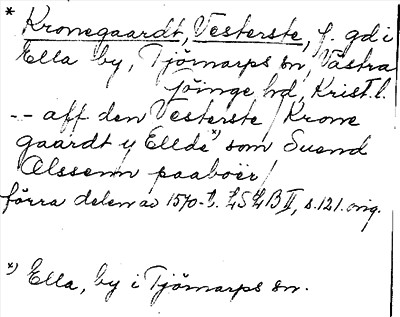 * Kronegaardt, Vesterste, f. gd i
Ella by, Tjörnarps sn, Västra
Göinge hd, Krist. l.
-- aff den Vesterste Krone
gaardt y Ellde *) som Suend
Olssenn paaboer/
förra delen av 1570-t. LSLB II, s. 121. orig.
*) Ella, by i Tjörnarps sn.